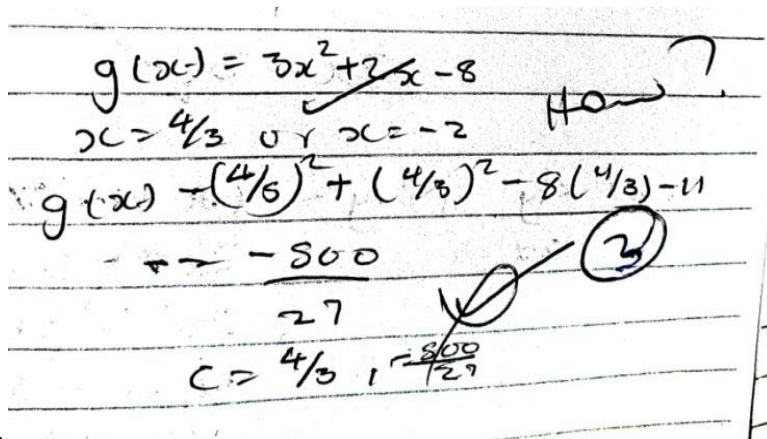 g(x) = 3x²+2x-8
How?
x = 4/3 or x = -2
g(x) -(4/3)² + (4/3)² - 8(4/3) - 11
= -500
27
3
C = 4/3 , -500/27